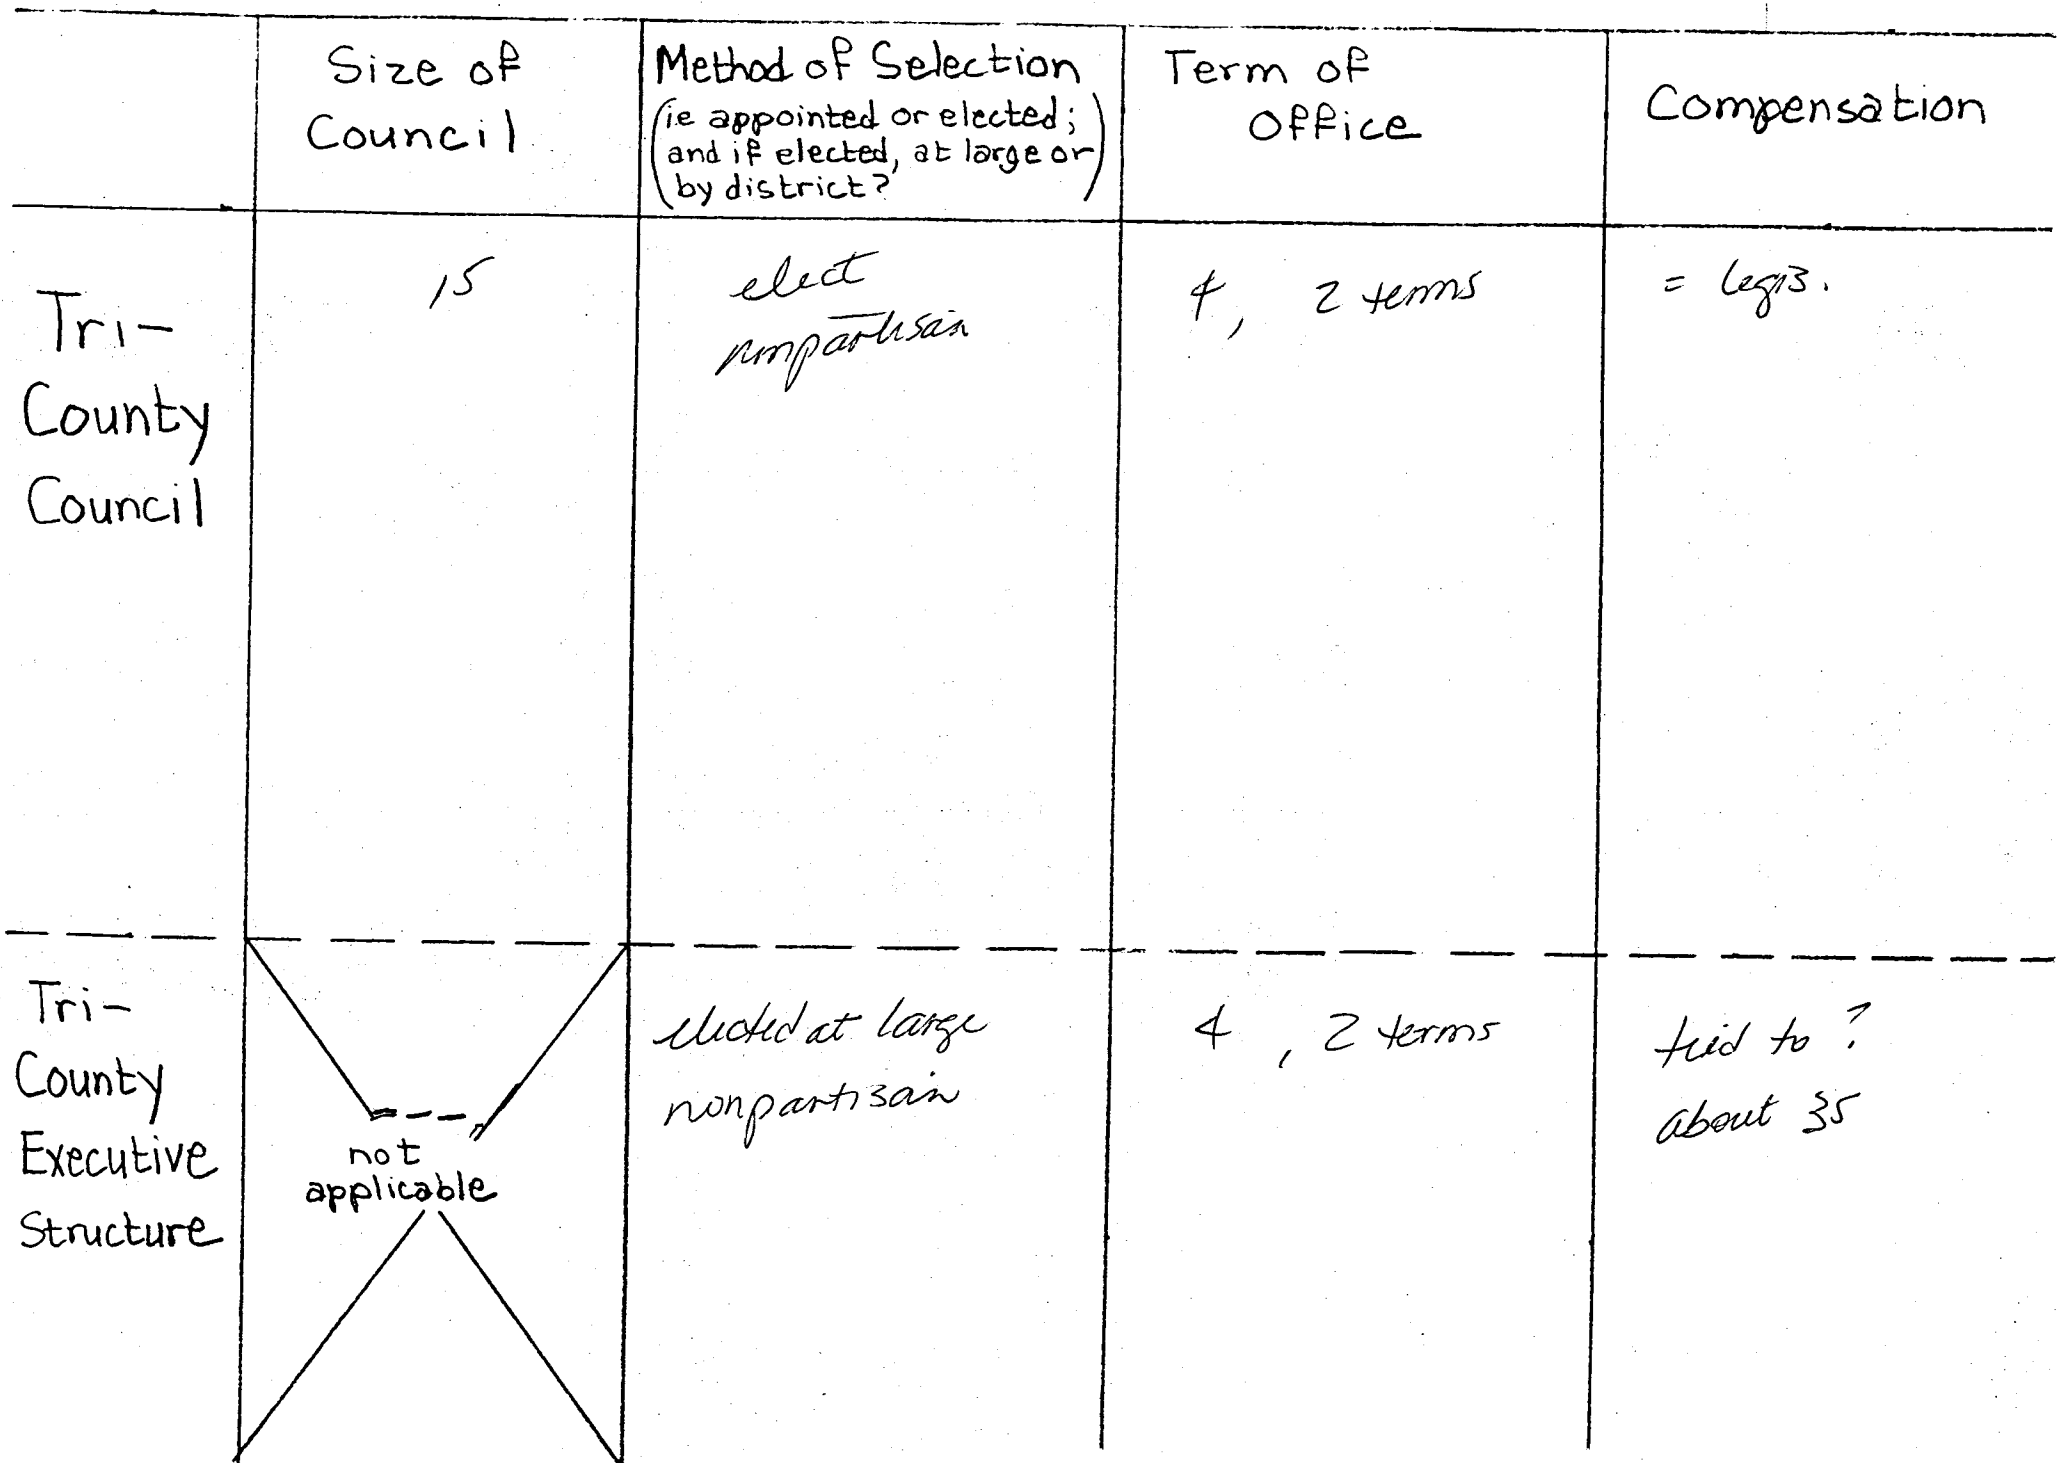 Size of
Council
Method of Selection
(ie appointed or elected;
and if elected, at large or
by district?)
Term of
Office
Compensation
Tri-
County
Council
15
elect
nonpartisan
4, 2 terms
= legis.
Tri-
County
Executive
Structure
not
applicable
elected at large
nonpartisan
4, 2 terms
tied to ?
about 35